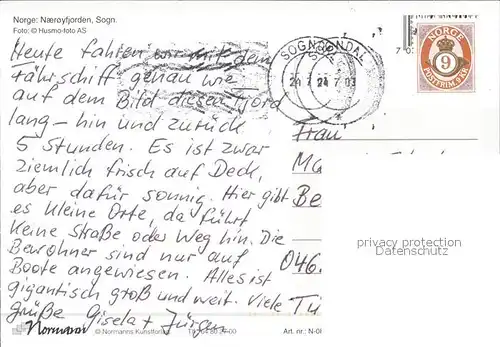 Norge: Nærøyfjorden, Sogn.
Foto: © Husmo-foto AS
Heute fahren wir mit dem
Fährschiff genau wie
auf dem Bild diesen Fjord
lang - hin und zurück
5 Stunden. Es ist zwar
ziemlich frisch auf Deck,
aber dafür sonnig. Hier gibt
es kleine Orte, da führt
keine Straße oder Weg hin. Die
Bewohner sind nur auf
Boote angewiesen. Alles ist
gigantisch groß und weit. Viele
Grüße Gisela + Jürgen
Normann
© Normanns Kunstforlag
Art. nr.: N-
SOGNDAL
24 7 03
NORGE
9
POSTFRIM.
Frau
Be
046
Tü
privacy protection
Datenschutz